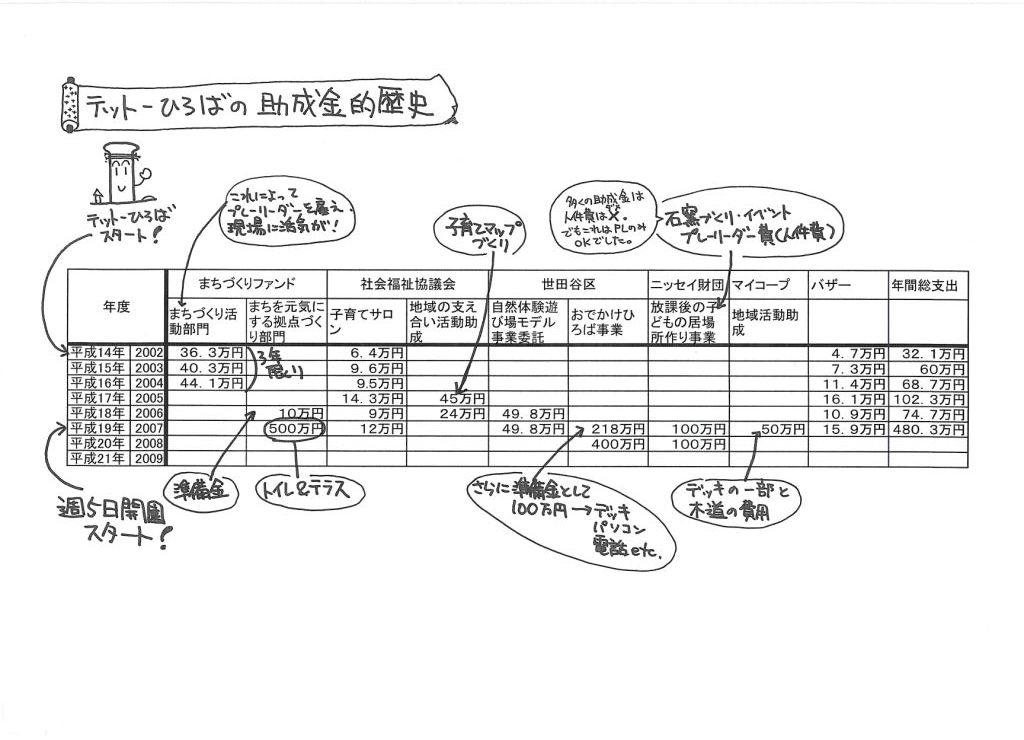 テットーひろばの助成金的歴史
テットーひろば
スタート!
これによって
プレーリーダーを雇え、
現場に活気が!
子育てマップ
づくり
多くの助成金は
人件費はダメ。
でもこれはPLのみ
OKでした。
石窯づくり・イベント
プレーリーダー費(人件費)
年度 まちづくりファンド 社会福祉協議会 世田谷区 ニッセイ財団 マイコープ バザー 年間総支出
まちづくり活 まちを元気に 子育てサロ 地域の支え 自然体験遊 おでかけひ 放課後の子 地域活動助
動部門 する拠点づく ン 合い活動助 び場モデル ろば事業 どもの居場 成
り部門 成 事業委託 所作り事業
平成14年 2002 36.3万円 6.4万円 4.7万円 32.1万円
平成15年 2003 40.3万円 9.6万円 7.3万円 60万円
平成16年 2004 44.1万円 9.5万円 11.4万円 68.7万円
3年
限り
平成17年 2005 14.3万円 45万円 16.1万円 102.3万円
平成18年 2006 10万円 9万円 24万円 49.8万円 10.9万円 74.7万円
平成19年 2007 500万円 12万円 49.8万円 218万円 100万円 50万円 15.9万円 480.3万円
平成20年 2008 400万円 100万円
平成21年 2009
週5日開園
スタート!
準備金
トイレ&テラス
さらに準備金として
100万円→デッキ
パソコン
電話etc.
デッキの一部と
木道の費用